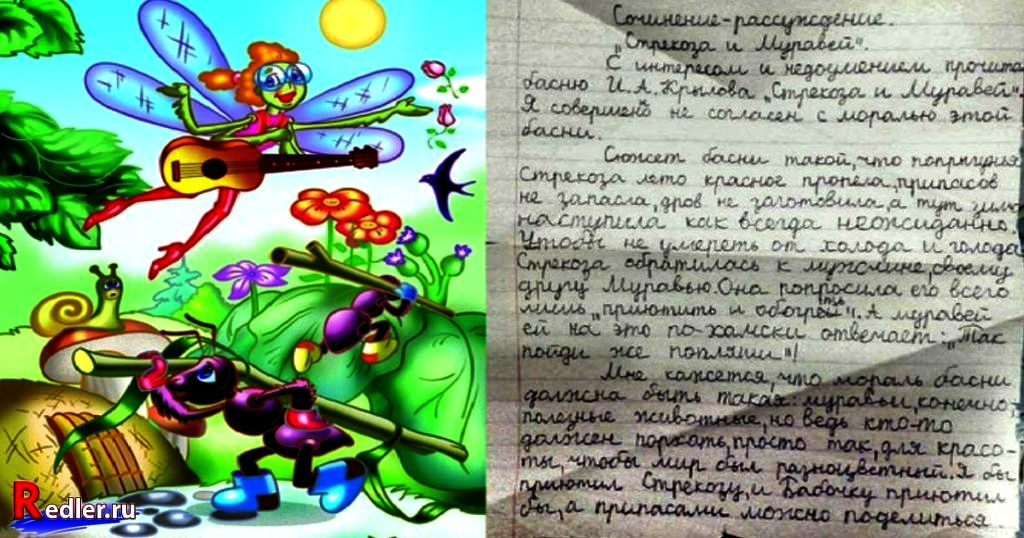 Сочинение-рассуждение.
„Стрекоза и Муравей".
С интересом и недоумением прочита
басню И.А.Крылова „Стрекоза и Муравей".
Я совершено не согласен с моралью этой
басни.
Сюжет басни такой, что попрыгунья
Стрекоза лето красное пропела, припасов
не запасла, дров не заготовила, а тут зима
наступила как всегда неожиданно.
Чтобы не умереть от холода и голода
Стрекоза обратилась к мужчине, своему
другу Муравью. Она попросила его всего
лишь „приютить и обогреть". А муравей
ей на это по-хамски отвечает: „Так
пойди же попляши"!
Мне кажется, что мораль басни
должна быть такая: муравьи, конечно,
полезные животные, но ведь кто-то
должен порхать, просто так, для красо-
ты, чтобы мир был разноцветный. Я бы
приютил Стрекозу, и Бабочку приютил
бы, а припасами можно поделиться.
Redler.ru